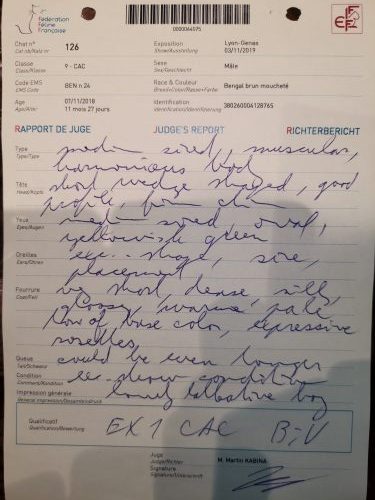 Fédération
Féline
Française
0000064575
FIFe
Chat n° 126 Exposition Lyon-Genas
Cat.nb/Katz nr Show/Ausstellung 03/11/2019
Classe 9 - CAC Sexe Mâle
Class/Klasse Sex/Geschlecht
Code EMS BEN n 24 Race & Couleur Bengal brun moucheté
EMS Code Breed+Color/Rasse+Farbe
Age 07/11/2018 Identification 380260004128765
Age/Alter 11 mois 27 jours Identification/Identifizierung
RAPPORT DE JUGE JUDGE'S REPORT RICHTERBERICHT
Type medium sized, muscular,
Type/Type harmonious body
Tête short wedge shaped, good
Head/Kopf profile, firm chin
Yeux medium sized, oval,
Eyes/Augen yellowish green
Oreilles exc. shape, size,
Ears/Ohren placement
Fourrure short, dense, silky,
Coat/Fell glossy, warm, pale
tow of base color, expressive
rosettes,
Queue could be even longer
Tail/Schwanz
Condition ex. show condition
Comment/Kondition
Impression générale lovely talkative boy
General impression/Gesamteindruck
Qualificatif EX 1 CAC BIV
Qualification/Bewertung
Juge M. Martin KABINA
Judge/Richter
Signature
Signature/Unterschrift